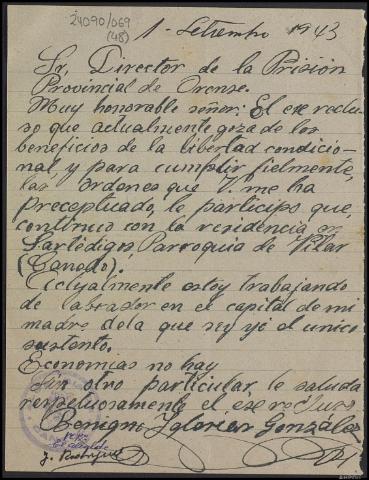 24090/069
(48)
1 - Setiembo 1943
Sr. Director de la Prisión
Provincial de Orense.
Muy honorable señor: El exreclu-
so que actualmente goza de los
beneficios de la libertad condicio-
nal, y para cumplir fielmente,
las órdenes que V. me ha
preceptuado, le participo que,
continuo con la residencia en
Parroquia de Vilar
(Canedo).
Actualmente estoy trabajando
de labrador en el capital de mi
madre de la que soy yo el unico
sustento.
Economias no hay
Sin otro particular le saluda
respetuosamente el exrecluso
Benigno Iglesias Gonzalez
El Alcalde
J. Rodriguez